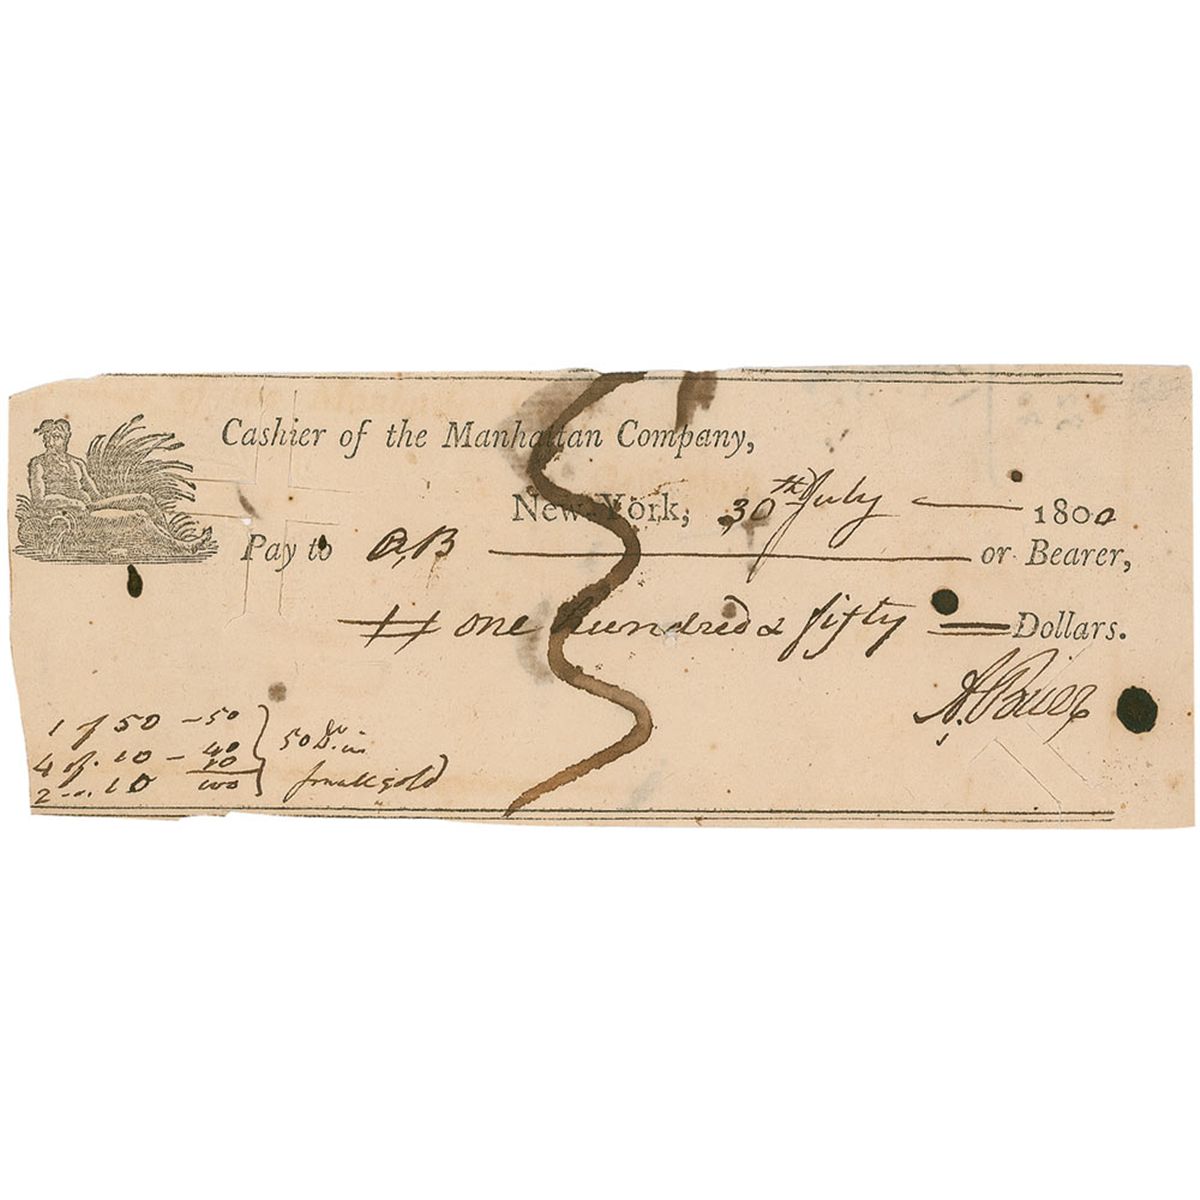 Cashier of the Manhattan Company,
New-York, 30th July — 1800
Pay to A,B — or Bearer,
one hundred & fifty — Dollars.
A. Burr
1 of 50 - 50
4 of. 10 - 40
2 .... 10 10
100
50 Dr in
small gold